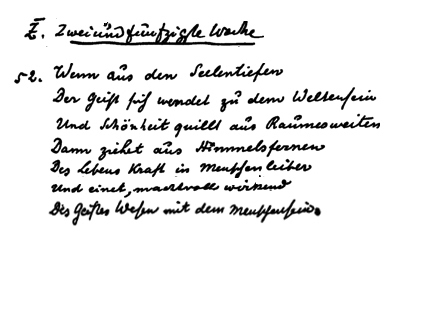 Z̅. Zweiundfünfzigste Woche
52. Wenn aus den Seelentiefen
Der Geist sich wendet zu dem Weltensein
Und Schönheit quillt aus Raumesweiten
Dann ziehet aus Himmelsfernen
Des Lebens Kraft in Menschenleiber
Und einet, machtvoll wirkend
Des Geistes Wesen mit dem Menschensein.